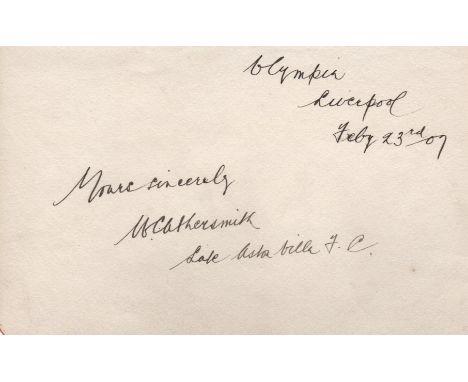 Olympia
Liverpool
Feby 23rd 07
Yours sincerely
W.C. Athersmith
Late Aston Villa F.C.